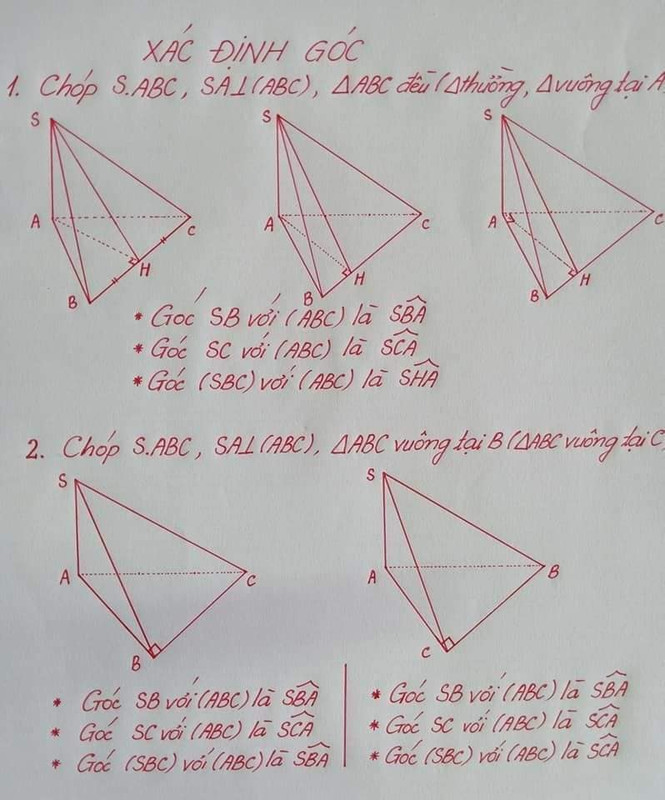 XÁC ĐỊNH GÓC
1. Chóp S.ABC, SA⊥(ABC), ΔABC đều (Δthường, Δvuông tại A
S S S
A C A C A C
H H H
B B B
* Góc SB với (ABC) là SBA
* Góc SC với (ABC) là SCA
* Góc (SBC) với (ABC) là SHA
2. Chóp S.ABC, SA⊥(ABC), ΔABC vuông tại B (ΔABC vuông tại C
S S
A C A B
B C
* Góc SB với (ABC) là SBA
* Góc SC với (ABC) là SCA
* Góc (SBC) với (ABC) là SBA
* Góc SB với (ABC) là SBA
* Góc SC với (ABC) là SCA
* Góc (SBC) với (ABC) là SCA